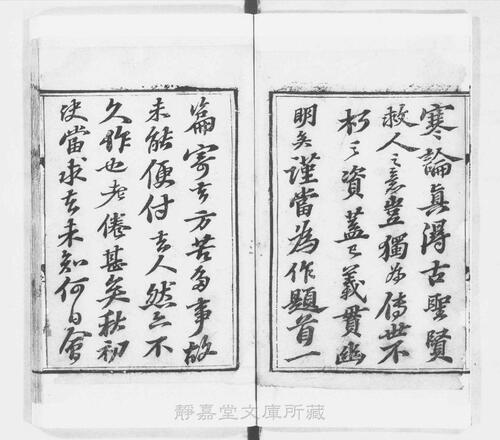 寒論真得古聖賢
救人之意豈獨為傳世不
朽之資蓋已義貫幽
明矣謹當為作題首一
篇寄去方苦多事故
未能便付去人然亦不
久作也老倦甚矣秋初
決當求去未知何日會
靜嘉堂文庫所藏